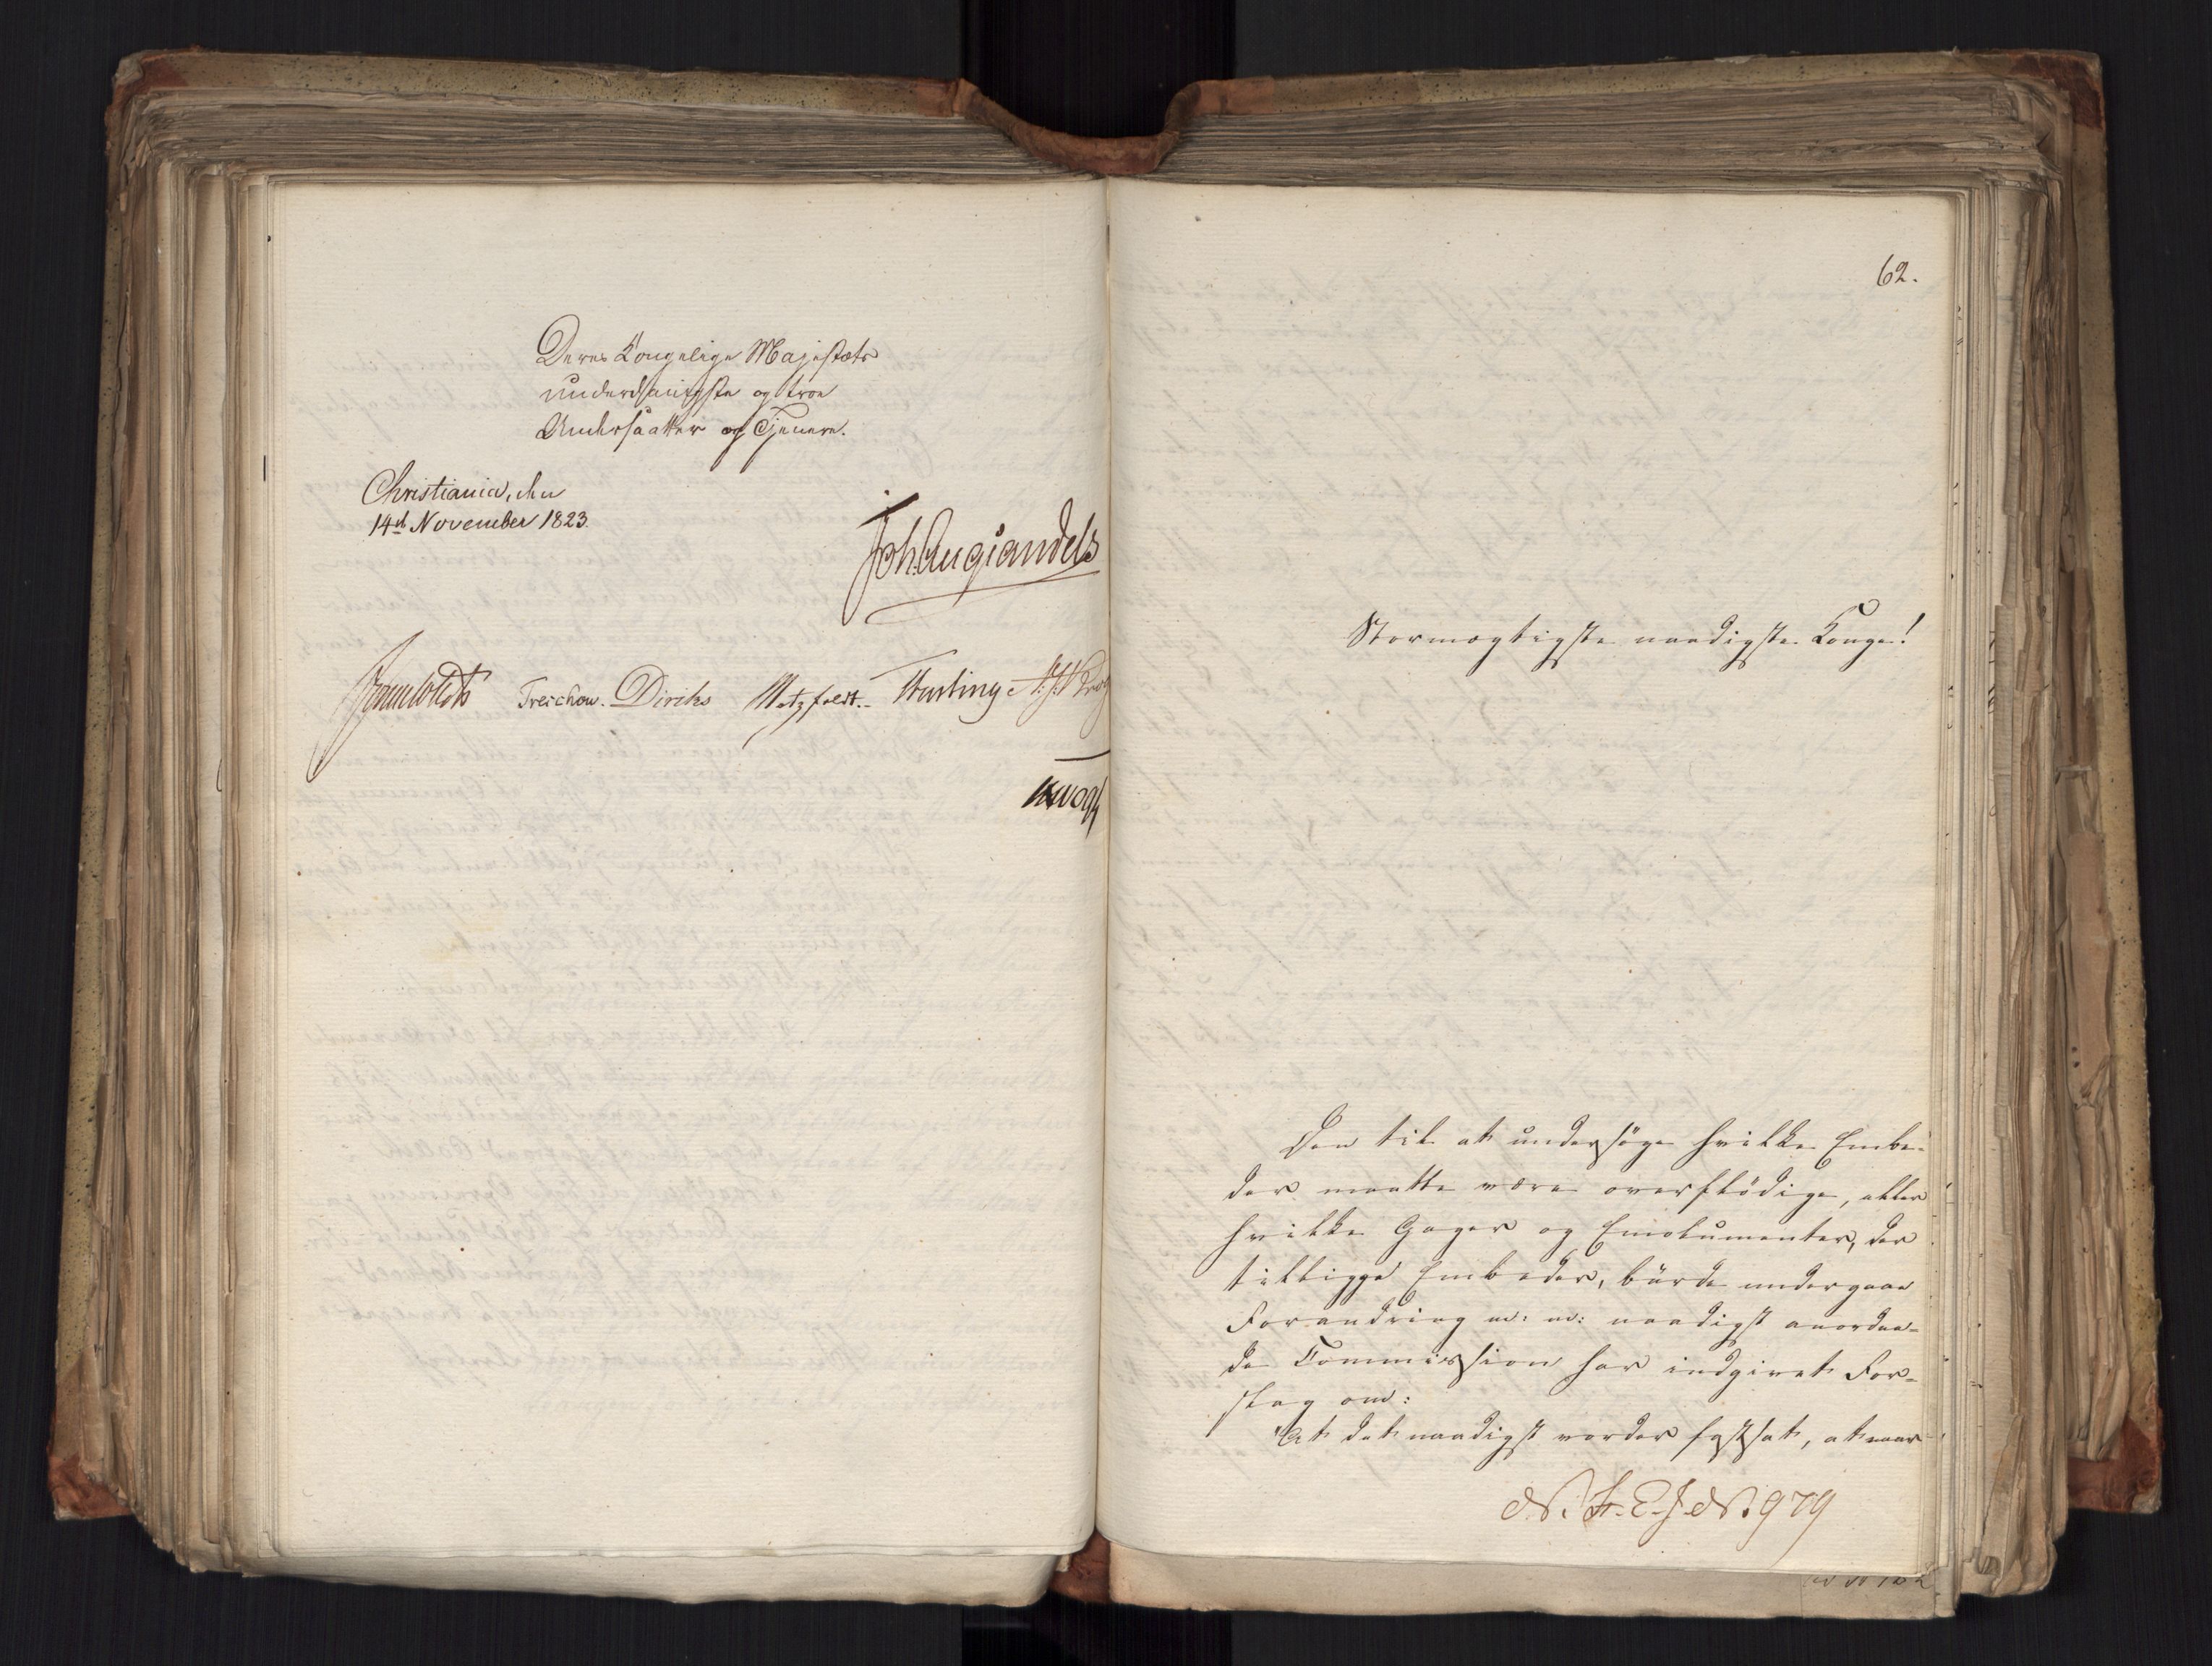 Deres Kongelige Majestæts
underdanigste og troe
Undersaatter og Tjenere.
Christiania, den
14de November 1823.
Joh. Aug. Sandels
Sommerhielm Treschow. Diriks Motzfeldt. Fasting. J. H. Vogt
Krogh
62.
Stormægtigste naadigste Konge!
Den til at undersöge hvilke Embe-
der maatte være overflödige, eller
hvilke Gager og Emolumenter, der
tillægges Embeder, burde undergaae
Forandring m: m: naadigst anordne-
de Commission har indgivet For-
slag om:
"At det naadigst vorder fastsat, at naar
N. F. E. J. N. 979